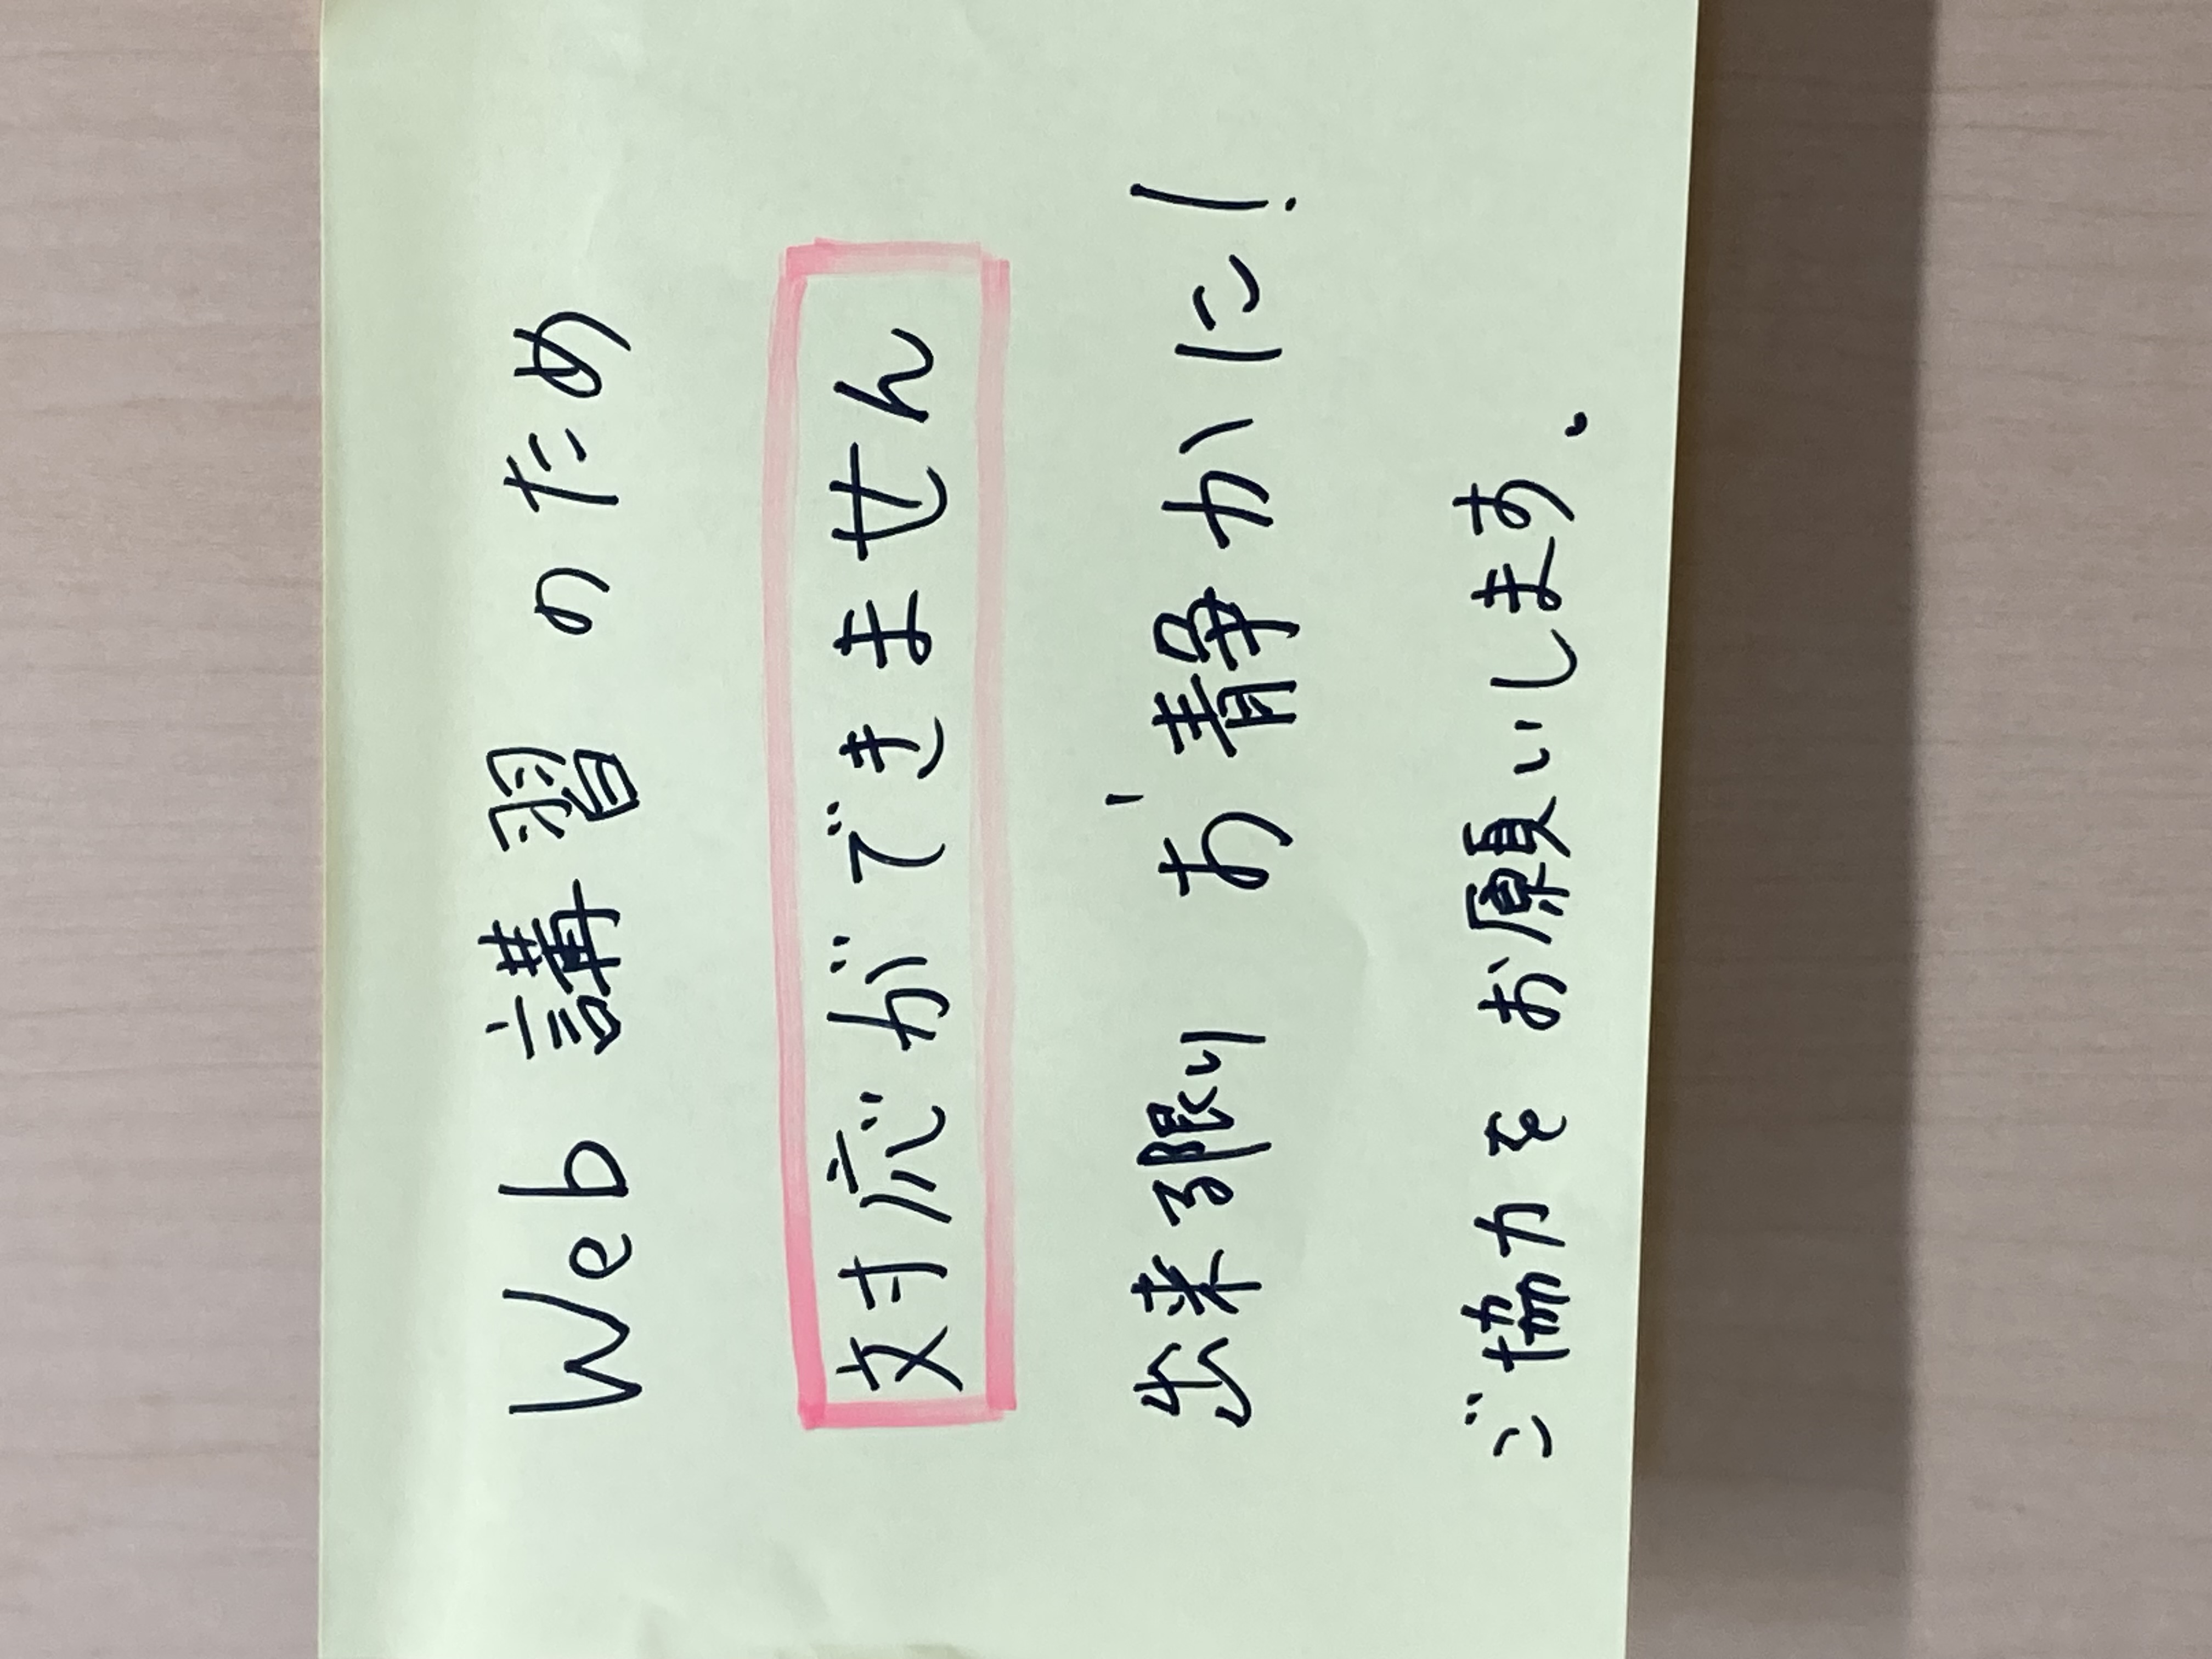 Web 講習 のため
対応ができません
出来る限り お静かに!
ご協力を お願いします。